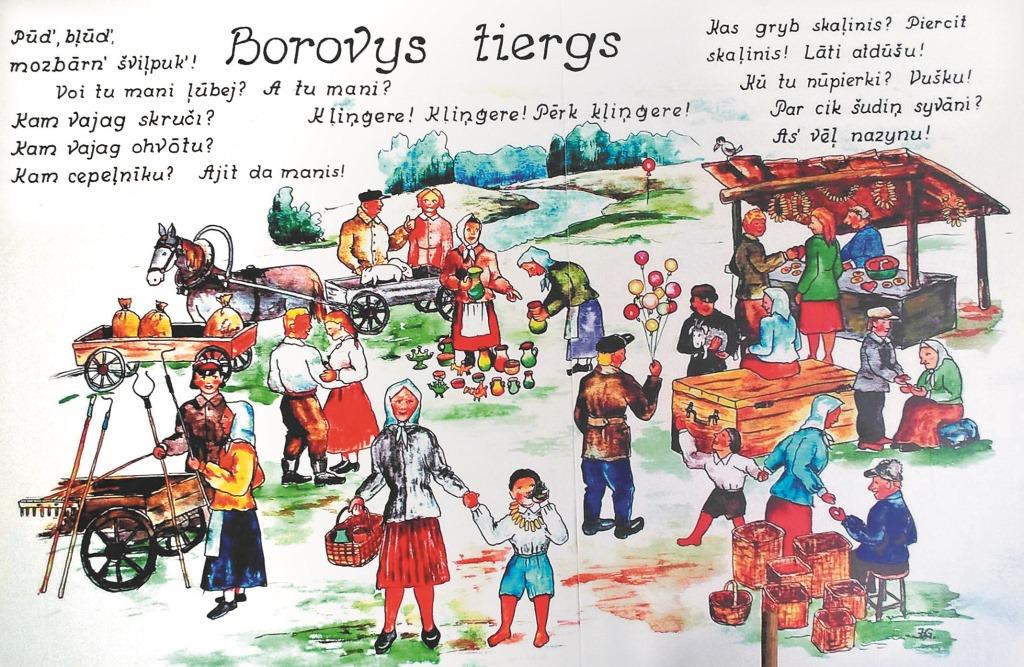 Borovys tiergs
Pūd', bļūd',
mozbārn' šviļpuk'!
Voi tu mani ļūbej? A tu mani?
Kam vajag skruči?
Kam vajag ohvōtu?
Kam cepeļnīku? Ajit da manis!
Kļinģere! Kļinģere! Pērk kļinģere!
Kas gryb skaļinis? Piercit
skaļinis! Lāti atdūšu!
Kū tu nūpierki? Vušku!
Par cik šudiņ syvāni?
As' vēļ nazynu!
ƗG.